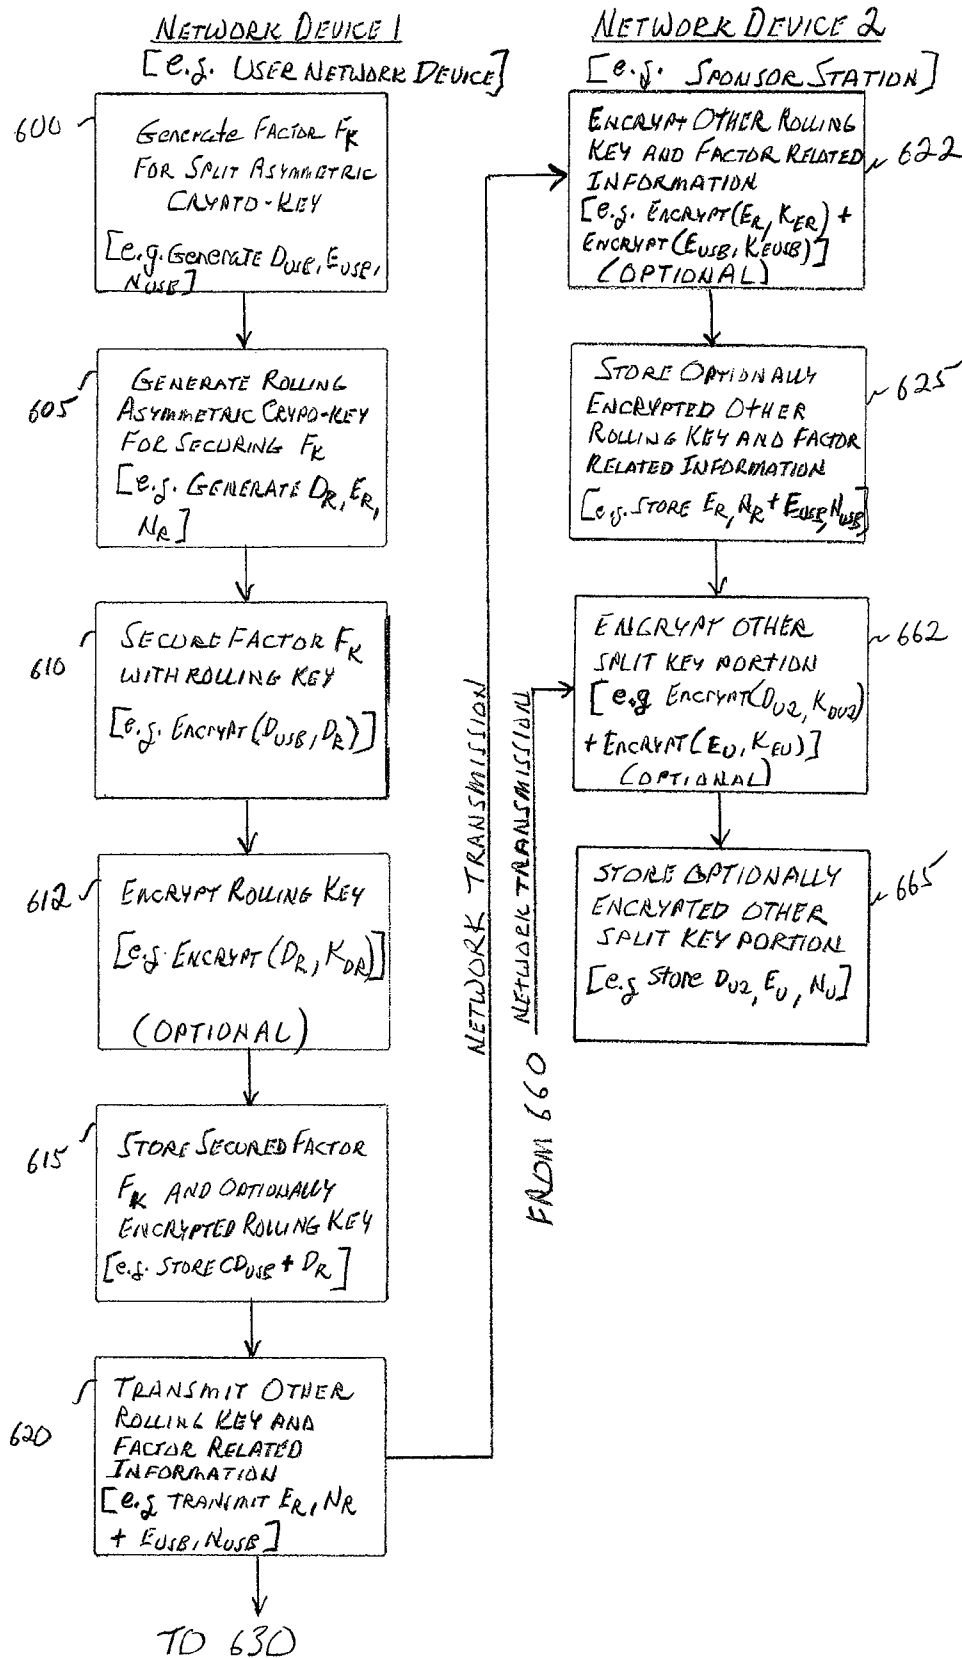 NETWORK DEVICE 1
[e.g. USER NETWORK DEVICE]
600
Generate FACTOR FK
FOR SPLIT ASYMMETRIC
CRYPTO-KEY
[e.g. Generate DUSB, EUSB,
NUSB]
605
GENERATE ROLLING
ASYMMETRIC CRYPO-KEY
FOR SECURING FK
[e.g. GENERATE DR, ER,
NR]
610
SECURE FACTOR FK
WITH ROLLING KEY
[e.g. ENCRYPT(DUSB, DR)]
612
ENCRYPT ROLLING KEY
[e.g. ENCRYPT(DR, KDR)]
(OPTIONAL)
615
STORE SECURED FACTOR
FK AND OPTIONALLY
ENCRYPTED ROLLING KEY
[e.g. STORE CDUSB + DR]
620
TRANSMIT OTHER
ROLLING KEY AND
FACTOR RELATED
INFORMATION
[e.g TRANSMIT ER, NR
+ EUSB, NUSB]
TO 630
NETWORK TRANSMISSION
FROM 660 NETWORK TRANSMISSION
NETWORK DEVICE 2
[e.g. SPONSOR STATION]
622
ENCRYPT OTHER ROLLING
KEY AND FACTOR RELATED
INFORMATION
[e.g. ENCRYPT(ER, KER) +
ENCRYPT(EUSB, KEUSB)]
(OPTIONAL)
625
STORE OPTIONALLY
ENCRYPTED OTHER
ROLLING KEY AND FACTOR
RELATED INFORMATION
[e.g. STORE ER, NR + EUSB, NUSB]
662
ENCRYPT OTHER
SPLIT KEY PORTION
[e.g ENCRYPT(DU2, KDU2)
+ ENCRYPT(EU, KEU)]
(OPTIONAL)
665
STORE OPTIONALLY
ENCRYPTED OTHER
SPLIT KEY PORTION
[e.g Store DU2, EU, NU]